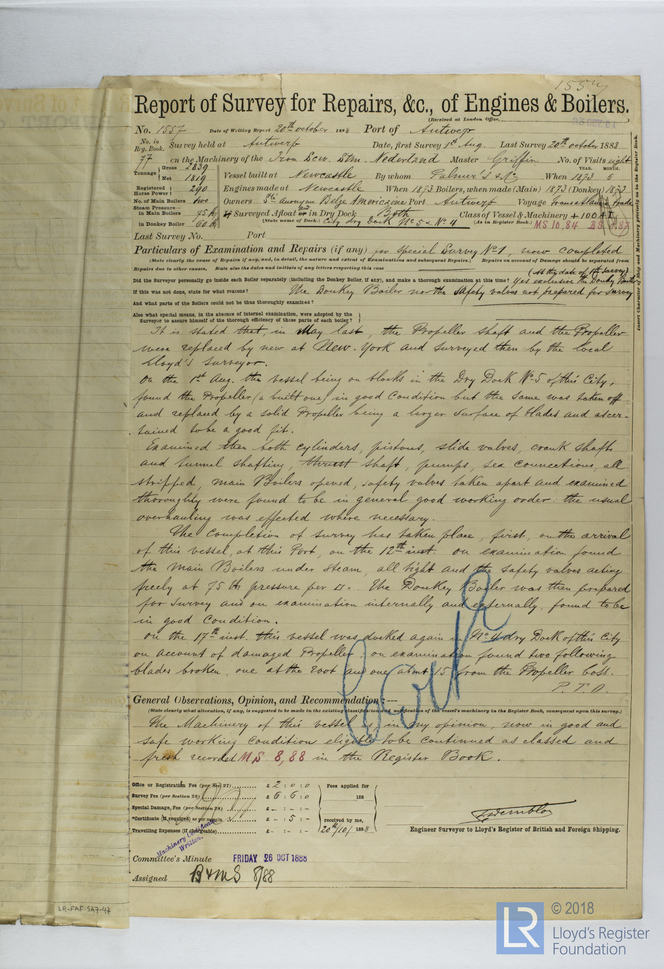 Report of Survey for Repairs, &c., of Engines & Boilers.
(Received at London Office,
No. 1557 Date of Writing Report 20th october 1888 Port of Antwerp
No. in Reg. Book. Survey held at Antwerp Date, first Survey 1st Aug. Last Survey 20th october 1888
77 on the Machinery of the Iron Scw. Stm. Nederland Master Griffin No. of Visits eight
Tonnage Gross 2839 Net 1819 Vessel built at Newcastle By whom Palmer's & Co. When 1873 8
YEAR. MONTH.
Registered Horse Power 290 Engines made at Newcastle When 1873 Boilers, when made (Main) 1873 (Donkey) 1873
No. of Main Boilers two Owners Sté anonyme Belge Americaine Port Antwerp Voyage
Steam Pressure in Main Boilers 75 lb If Surveyed Afloat or in Dry Dock Both Class of Vessel & Machinery + 100 A 1
in Donkey Boiler 60 lb (State name of Dock.) City dry Dock No. 5 & No. 4 (As in Register Book.) MS 10,84
Last Survey No. Port
Particulars of Examination and Repairs (if any) for Special Survey No 1, now completed
(State clearly the cause of Repairs if any, and, in detail, the nature and extent of Examinations and subsequent Repairs.) Repairs on account of Damage should be separated from
Repairs due to other causes. State also the dates and initials of any letters respecting this case (At the date of 1st Survey)
Did the Surveyor personally go inside each Boiler separately (including the Donkey Boiler, if any), and make a thorough examination at this time? Yes exclusive the Donkey Boiler
If this was not done, state for what reasons? The Donkey Boiler nor the Safety valves not prepared for Survey
And what parts of the Boilers could not be thus thoroughly examined?
Also what special means, in the absence of internal examination, were adopted by the
Surveyor to assure himself of the thorough efficiency of those parts of each boiler?
It is stated that in May last the Propeller shaft and the Propeller
were replaced by new at New-York and surveyed then by the local
Lloyd's Surveyor.
On the 1st Aug. the vessel being on blocks in the Dry Dock No 5 of this City,
found the Propeller (a built one) in good Condition but the same was taken off
and replaced by a solid Propeller being a larger surface of blades and ascer-
tained to be a good fit.
Examined then both cylinders, pistons, slide valves, crank shafts
and tunnel shafting, thrust shaft, pumps, sea connections, all
stripped, main Boilers opened, safety valves taken apart and examined
thoroughly were found to be in general good working order. the usual
overhauling was effected where necessary.
The Completion of survey has taken place, first, on the arrival
of this vessel, at this Port, on the 12th inst. on examination found
the main Boilers under steam, all tight and the safety valves acting
freely at 75 lb pressure per □. The Donkey Boiler was then prepared
for Survey and on examination internally and externally, found to be
in good Condition.
On the 17th inst. this vessel was docked again in No 4 dry Dock of this City
on account of damaged Propeller, on examination found two following
blades broken, one at the root and one abt 15" from the Propeller boss.
P.T.O.
General Observations, Opinion, and Recommendation:—
(State clearly what alteration, if any, is suggested to be made in the existing classification and notification of the vessel's machinery in the Register Book, consequent upon this survey.)
The Machinery of this vessel is, in my opinion, now in good and
safe working condition eligible to be continued as classed and
fresh record MS 8,88 in the Register Book.
Office or Registration Fee (per Sec 27) £ 2 : 0 : 0 Fees applied for
Survey Fee (per Section 28) £ 6 : 6 : 0 188
Special Damage, Fee (per Section 28) £ - : - : -
*Certificate (if required) as per margin £ - : 5 : - received by me,
Travelling Expenses (if chargeable) £ - : - : - 20th/10/ 1888
Engineer Surveyor to Lloyd's Register of British and Foreign Shipping.
Machinery Certificate Written.
Committee's Minute FRIDAY 26 OCT 1888
Assigned B&MS 8/88
LR-FAF-SA7-47
LR
© 2018
Lloyd's Register
Foundation